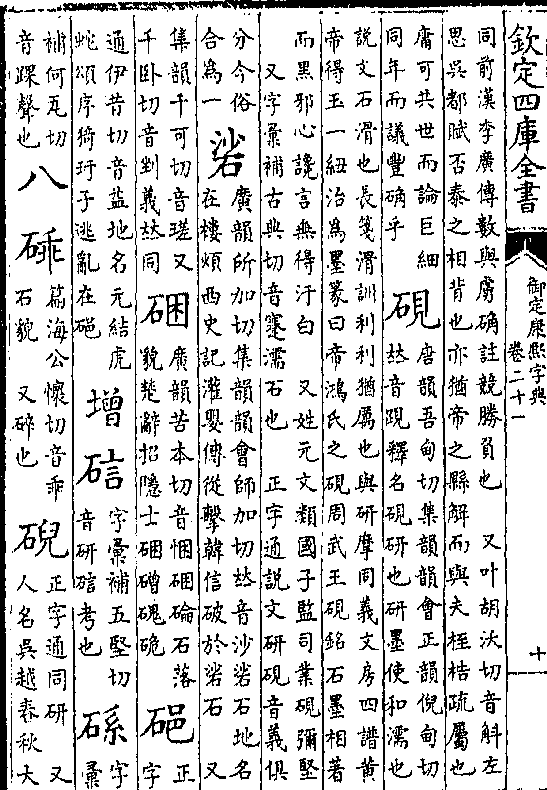 欽定四庫全書
御定康熙字典
卷二十一
十
同前漢李廣傳數與虜确註競勝負也 又叶胡沃切音斛左
思吳都賦否泰之相背也亦猶帝之縣解而與夫桎梏疏屬也
庸可共世而論巨細
同年而議豐确乎
硯
唐韻吾甸切集韻韻會正韻倪甸切
𠀤音睍釋名硯研也研墨使和濡也
說文石滑也長箋滑訓利利猶厲也與研摩同義文房四譜黃
帝得玉一紐治為墨篆曰帝鴻氏之硯周武王硯銘石墨相著
而黑邪心讒言無得汙白 又姓元文類國子監司業硯彌堅
又字彙補古典切音蹇濡石也 正字通說文研硯音義俱
分今俗
合為一
硰
廣韻所加切集韻韻會師加切𠀤音沙硰石地名
在樓煩西史記灌嬰傳從擊韓信破於硰石 又
集韻千可切音瑳又
千卧切音剉義𠀤同
硱
廣韻苦本切音悃硱碖石落
貌楚辭招隱士硱磳磈硊
硽
正
字
通伊昔切音益地名元結虎
蛇頌序猗玗子逃亂在硽
增
字彙補五堅切
音研 考也
字
彙
補何瓦切
音踝聲也
八
篇海公懷切音乖
石貌 又碎也
正字通同研 又
人名吳越春秋大